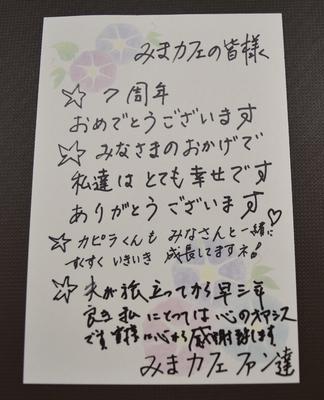 みまカフェの皆様
☆ 7周年
おめでとうございます
☆ みなさまのおかげで
私達は とても幸せです
ありがとう ございます♡
☆ カピラくんも みなさんと一緒に
すくすく いきいき 成長してますネ!
☆ 夫が旅立ってから早三年
私 にとっては 心のオアシス
です 皆様に心から感謝致します
みまカフェ ファン達